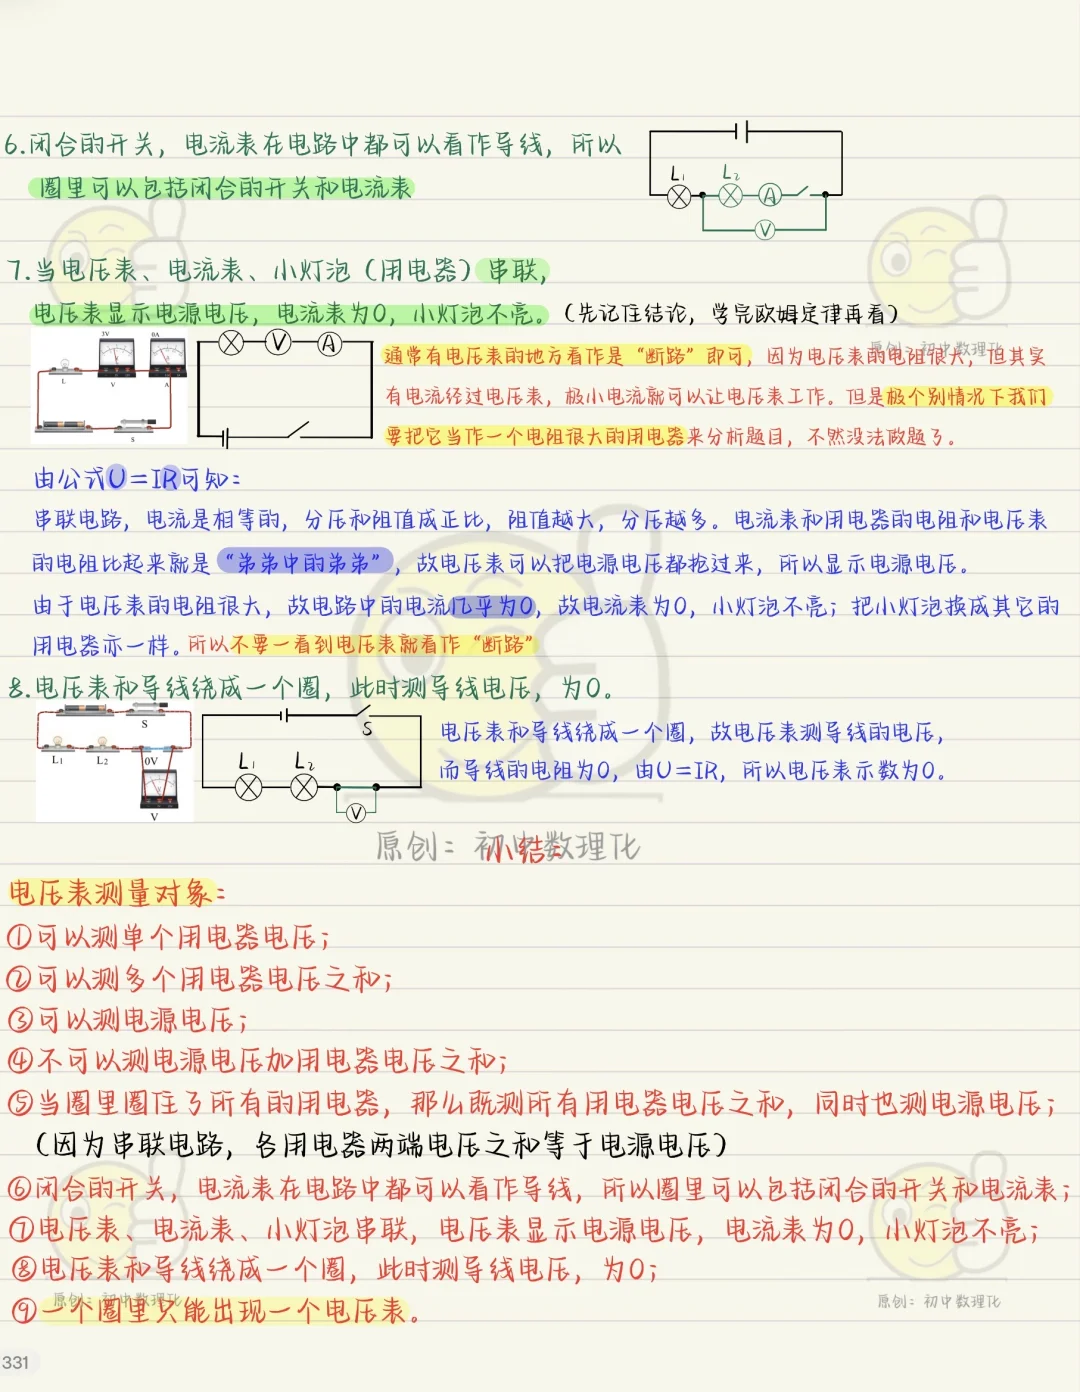 6.闭合的开关，电流表在电路中都可以看作导线，所以
圈里可以包括闭合的开关和电流表
L₁ L₂ A V
7.当电压表、电流表、小灯泡（用电器）串联，
电压表显示电源电压，电流表为0，小灯泡不亮。（先记住结论，学完欧姆定律再看）
3V 0A L V A S
V A
通常有电压表的地方看作是“断路”即可，因为电压表的电阻很大，但其实
有电流经过电压表，极小电流就可以让电压表工作。但是极个别情况下我们
要把它当作一个电阻很大的用电器来分析题目，不然没法做题了。
由公式U=IR可知：
串联电路，电流是相等的，分压和阻值成正比，阻值越大，分压越多。电流表和用电器的电阻和电压表
的电阻比起来就是“弟弟中的弟弟”，故电压表可以把电源电压都抢过来，所以显示电源电压。
由于电压表的电阻很大，故电路中的电流几乎为0，故电流表为0，小灯泡不亮；把小灯泡换成其它的
用电器亦一样。所以不要一看到电压表就看作“断路”
8.电压表和导线绕成一个圈，此时测导线电压，为0。
S L₁ L₂ 0V V
S L₁ L₂ V
电压表和导线绕成一个圈，故电压表测导线的电压，
而导线的电阻为0，由U=IR，所以电压表示数为0。
原创：初中数理化
小结：
电压表测量对象：
①可以测单个用电器电压；
②可以测多个用电器电压之和；
③可以测电源电压；
④不可以测电源电压加用电器电压之和；
⑤当圈里圈住了所有的用电器，那么既测所有用电器电压之和，同时也测电源电压；
（因为串联电路，各用电器两端电压之和等于电源电压）
⑥闭合的开关，电流表在电路中都可以看作导线，所以圈里可以包括闭合的开关和电流表；
⑦电压表、电流表、小灯泡串联，电压表显示电源电压，电流表为0，小灯泡不亮；
⑧电压表和导线绕成一个圈，此时测导线电压，为0；
⑨一个圈里只能出现一个电压表。
原创：初中数理化
原创：初中数理化
331